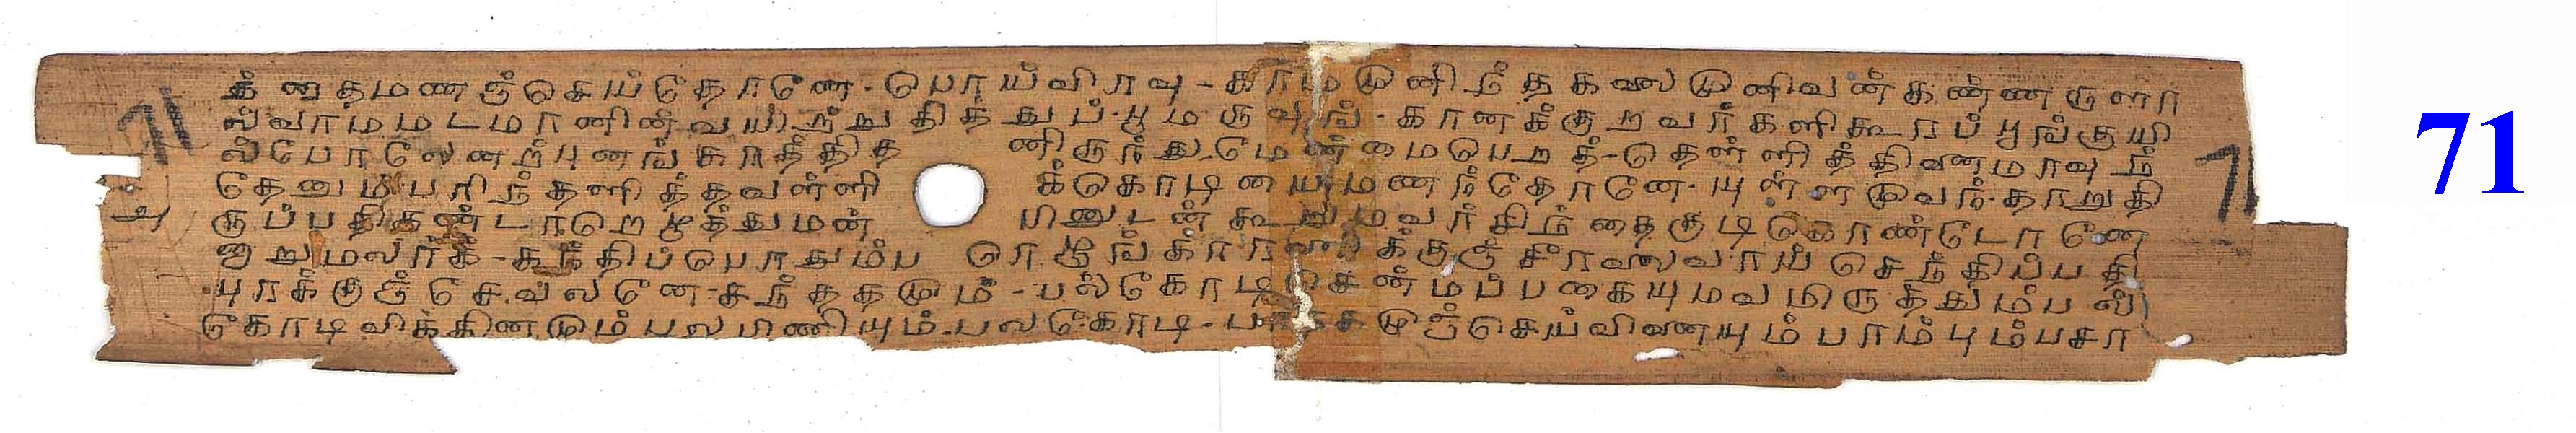 த் னதமணஞ்செய்தோனே-பொய்விரவு-காமமுனிந்த கலைமுனிவன்கண்ணருளா
ல்வாமமடமானின்வயிற்றுதித்துப்-பூமருவுங்-கானக்குறவர்களிகூரப்பூங்குயி
ல்போலேனற்புனங்காத்தித னிருந்துமேன்மைபெறத்-தெள்ளித்திணைமாவுந்
தேனும்பரிந்தளித்தவள்ளி க்கொடியை மணந்தோனே-யுள்ளமுவந்-தாறுதி
ருப்பதிகண்டாறெழுத்துமன் பினுடன்கூறுமவர்சிந்தைகுடிகொண்டோனே
னூறுமலர்க்-கந்திப்பொதும்ப ரெழுங்காரலைக்குஞ்சீரலைவாய்செந்திப்பதி
புரக்குஞ்சேவலனே-சந்ததமும்-பல்கோடிசென்மப்பகையுமவமிருத்தும்பல்
கோடிவிக்கினமும்பலபிணியும்-பலகோடி- முஞ்செய்வினையும்பாம்பும்பசா
71
71
71